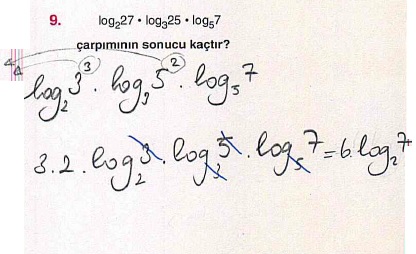 9. log₂27 • log₃25 • log₅7
çarpımının sonucu kaçtır?
log₂3³ . log₃5² . log₅7
3.2. log₂3 . log₃5 . log₅7 = 6.log₂7